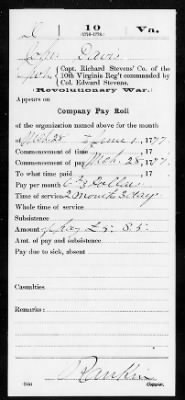 D | 10 | Va.
(1776-1778.)
Davi
Capt. Richard Stevens' Co. of the
10th Virginia Reg't commanded by
Col. Edward Stevens.
(Revolutionary War.)
Appears on
Company Pay Roll
of the organization named above for the month
of Mch 28 to June 1, 1777.
Commencement of time , 17
Commencement of pay Mch. 28, 1777.
To what time paid , 17
Pay per month 6 2/3 Dollars
Time of service 2 month 3 day
Whole time of service
Subsistence
Amount of Pay £ 5: 8 5:
Amt. of pay and subsistence
Pay due to sick, absent
Casualties
Remarks:
Rankin
Copyist.